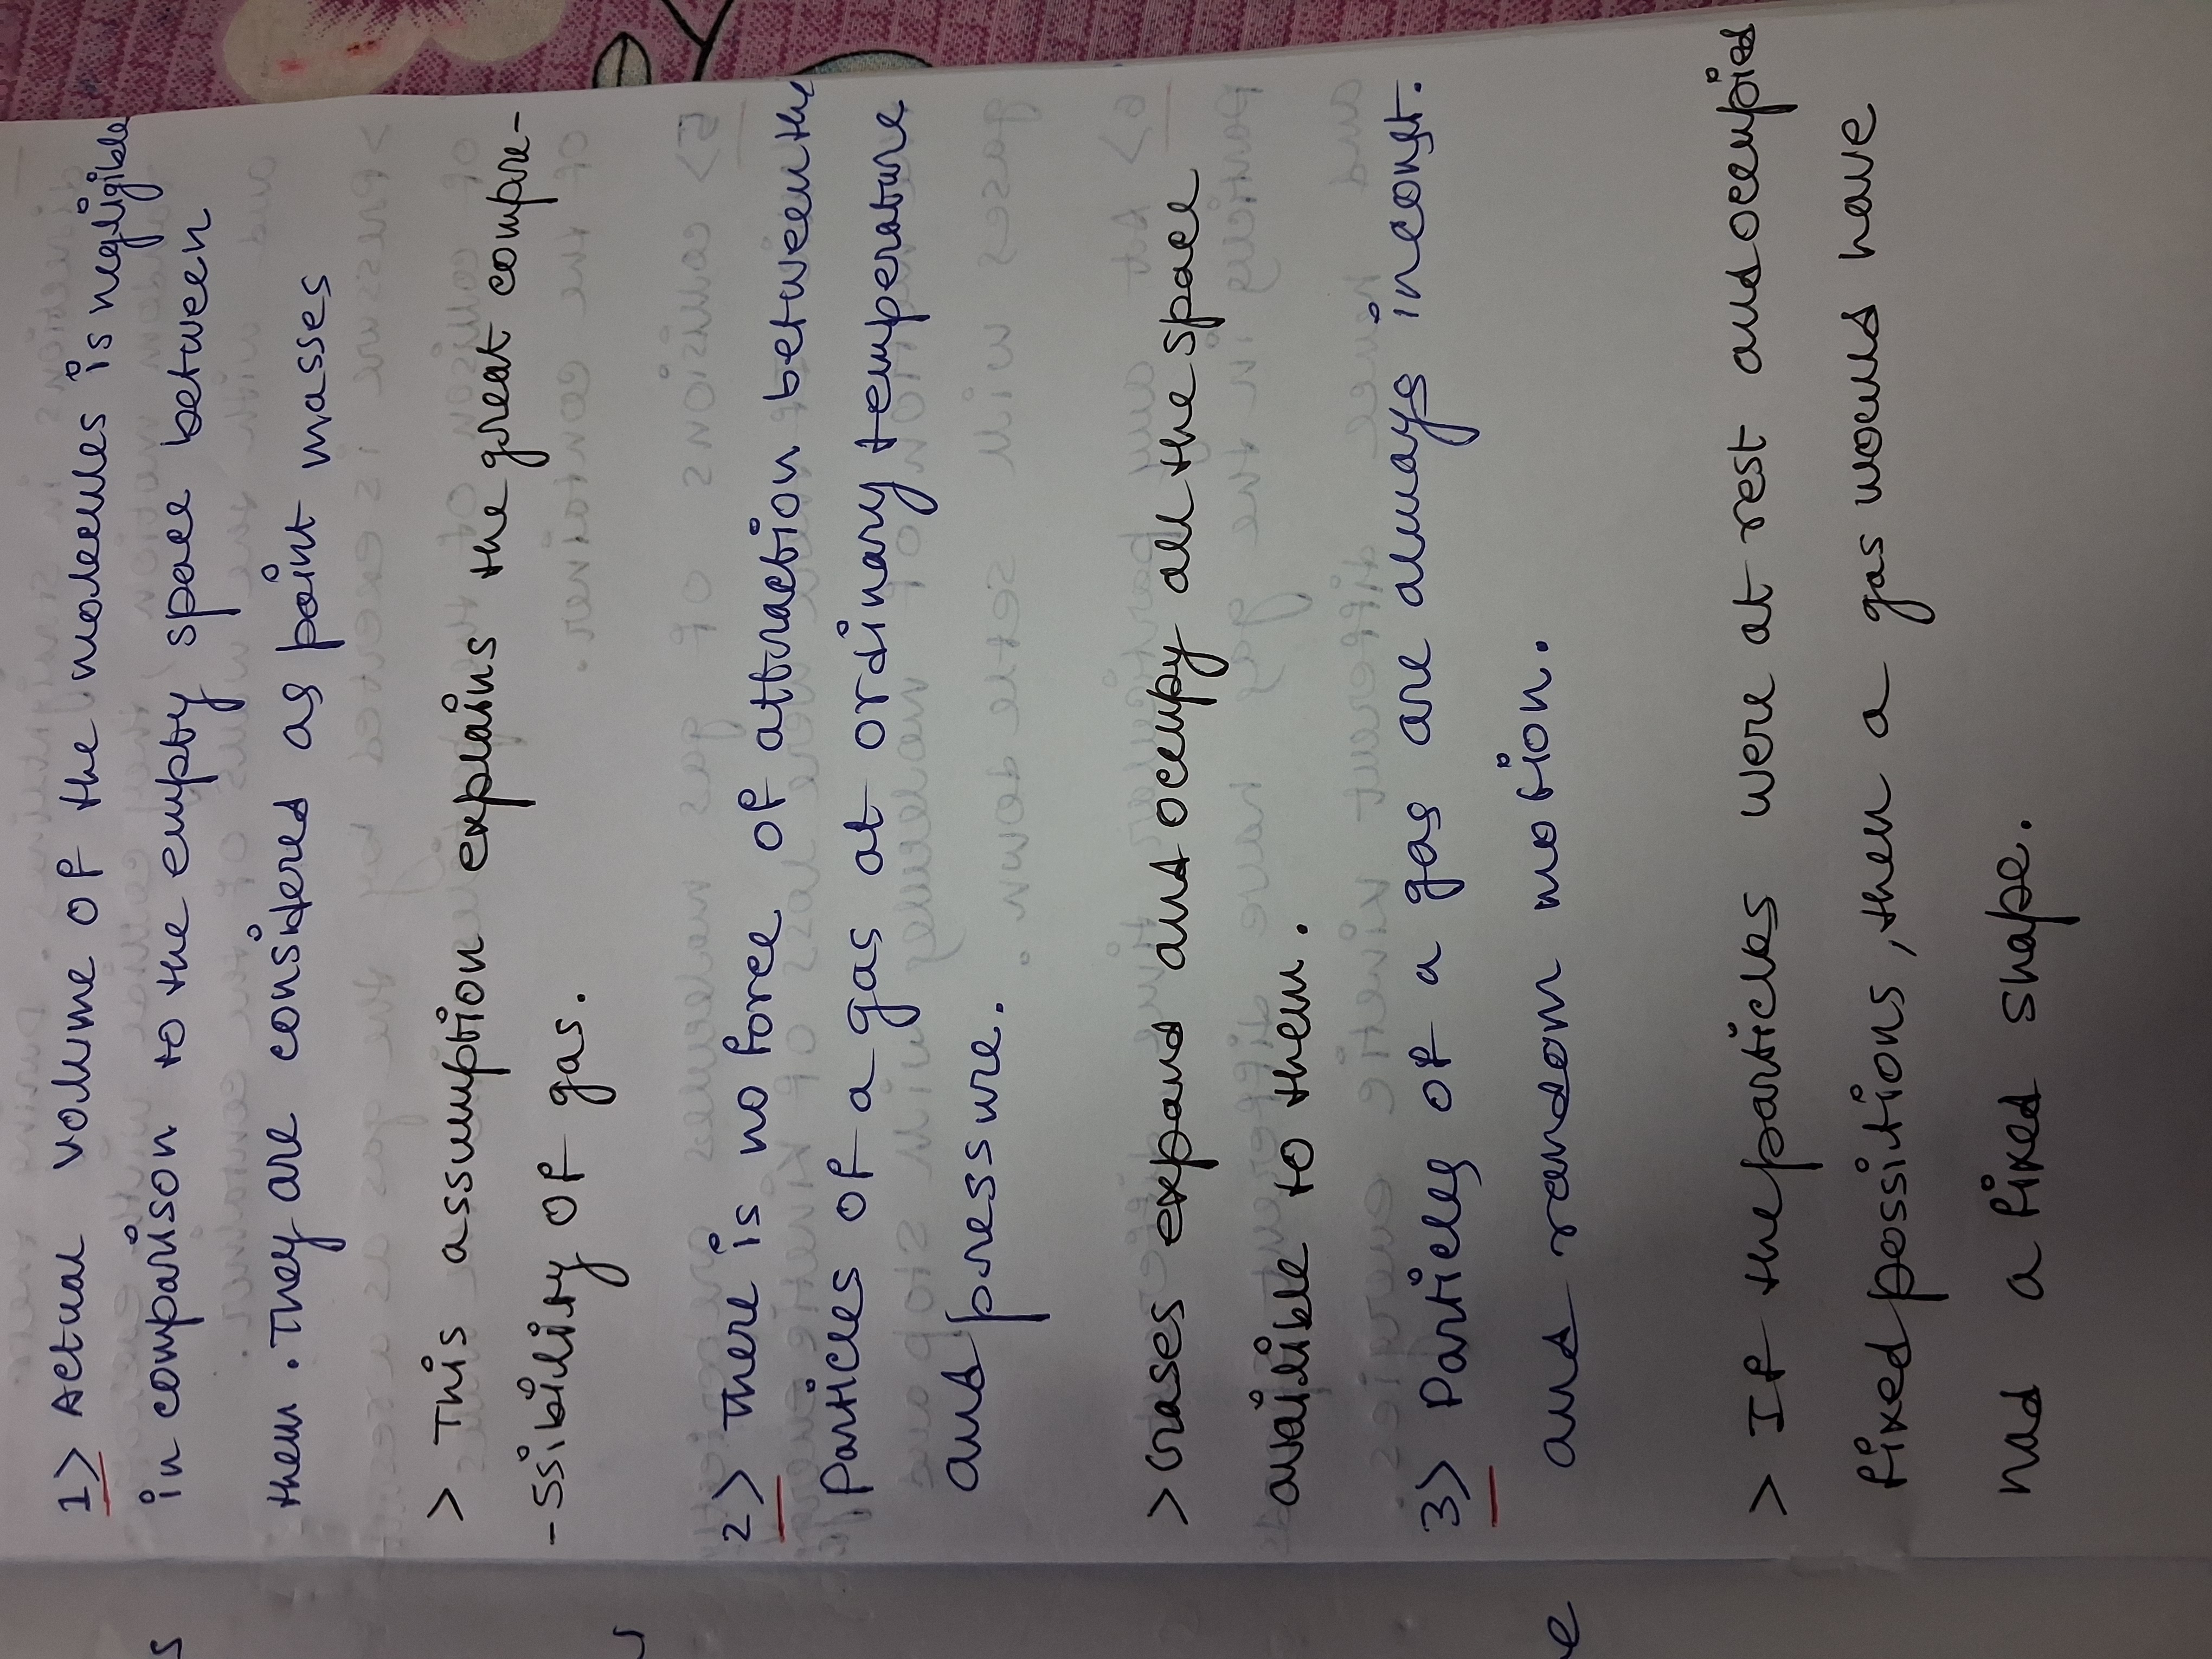 1> Actual volume of the molecules is negligible
in comparison to the empty space between
them. They are considered as point masses
> This assumption explains the great compre-
-ssibility of gas.
2> There is no force of attraction between the
particles of a gas at ordinary temperature
and pressure.
> Gases expand and occupy all the space
availible to them.
3> Particles of a gas are always in const.
and random motion.
> If the particles were at rest and occupied
fixed possitions, then a gas would have
had a fixed shape.